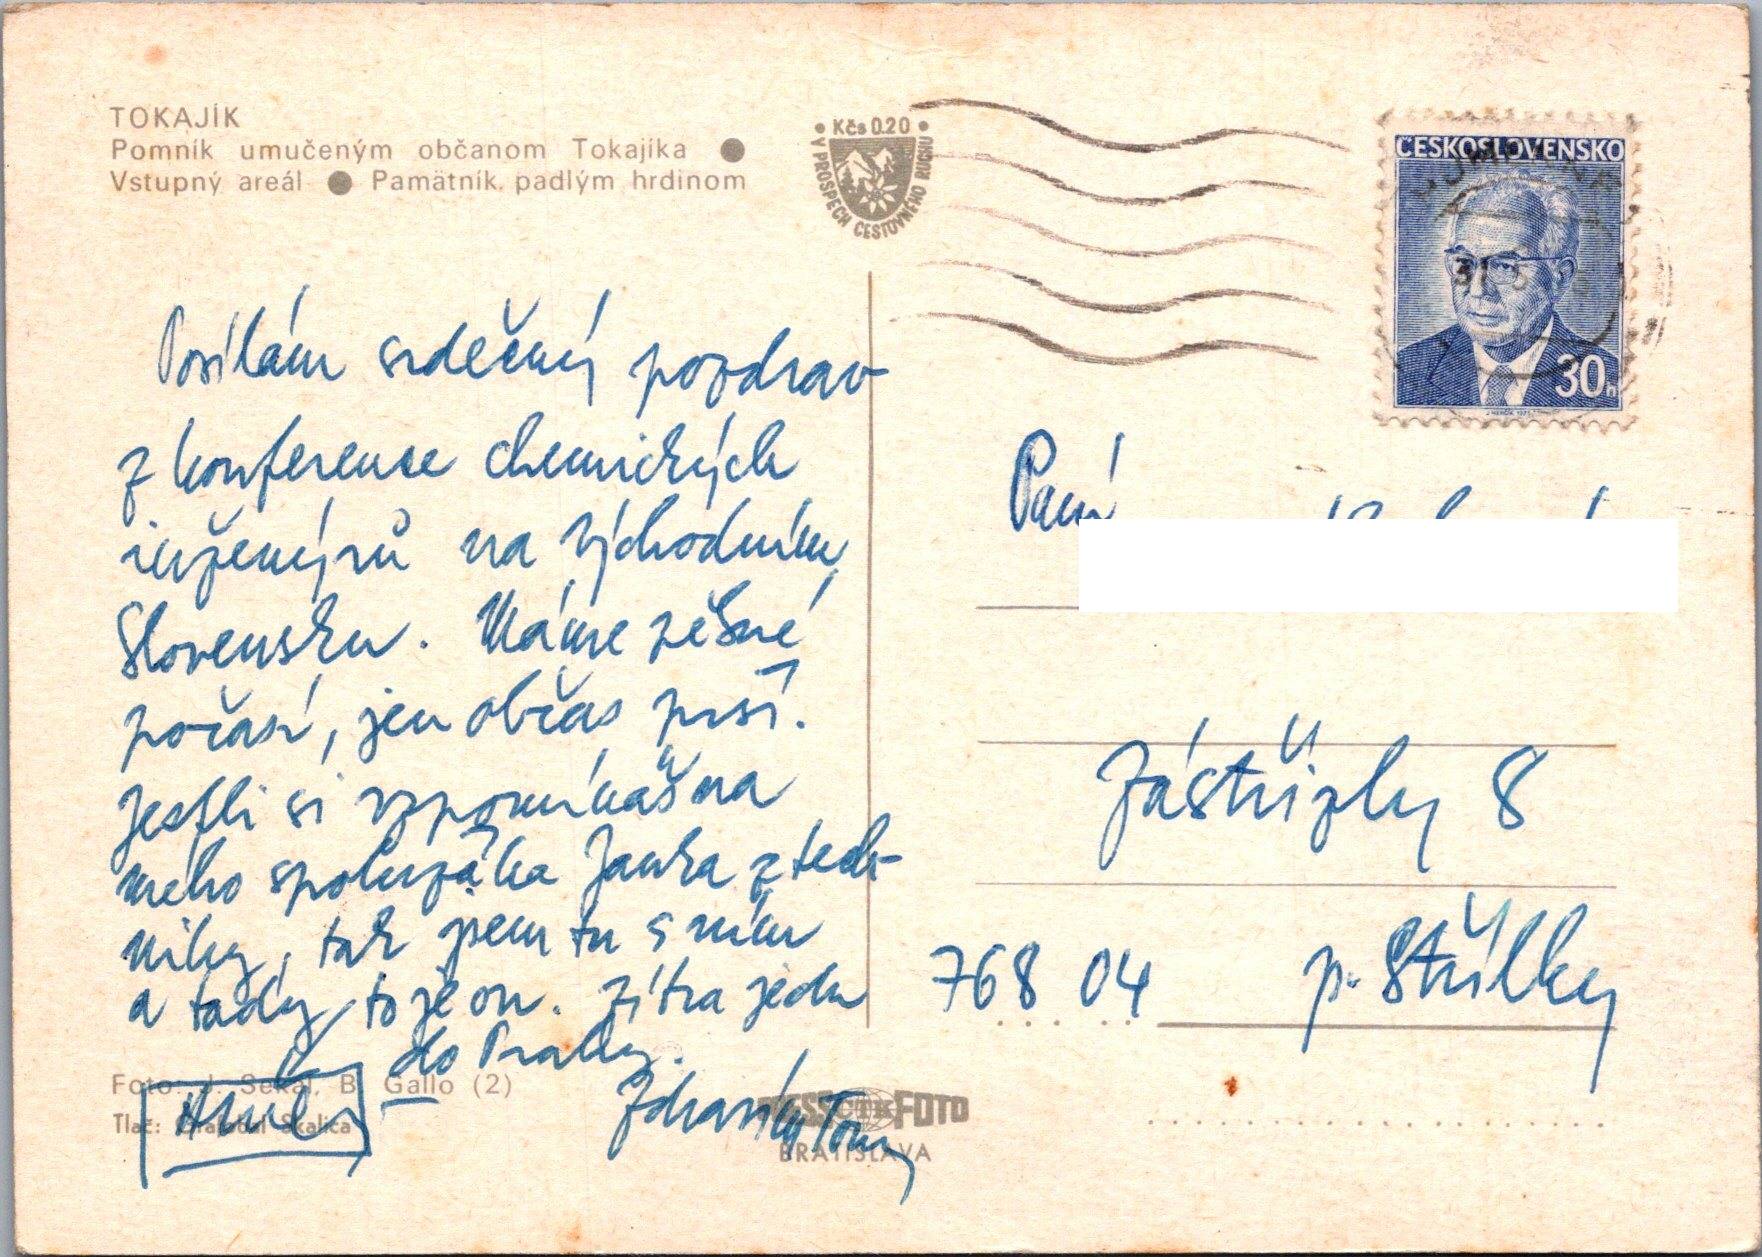 TOKAJÍK
Pomník umučeným občanom Tokajíka ●
Vstupný areál ● Pamätník padlým hrdinom
• Kčs 0.20 •
V PROSPECH CESTOVNÉHO RUCHU
ČESKOSLOVENSKO
30h
Posílám srdečný pozdrav
z konference chemických
inženýrů na Východním
Slovensku. Máme pěkné
počasí, jen občas prší.
Jestli si vzpomínáš na
mého spolužáka Janka z tech-
niky, tak jsem tu s ním
a tady to je on. Zítra jedu
do Prahy.
Zdraví Tom
Paní
Zástřizly 8
768 04 p. Střílky
Foto: J. Sekal, B. Gallo (2)
Tlač: Skalica
PRESSFOTO
BRATISLAVA